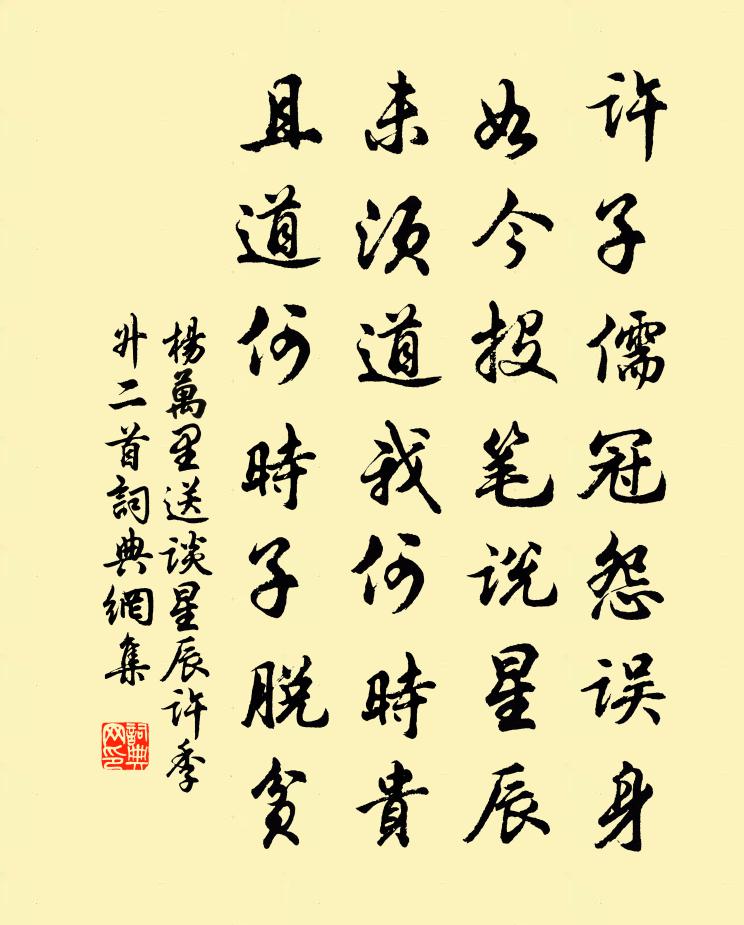 许子儒冠怨误身
如今投笔说星辰
未须道我何時貴
且道何時子脱貧
楊萬里送谈星辰许季
升二首詞典網集
詞典
网印